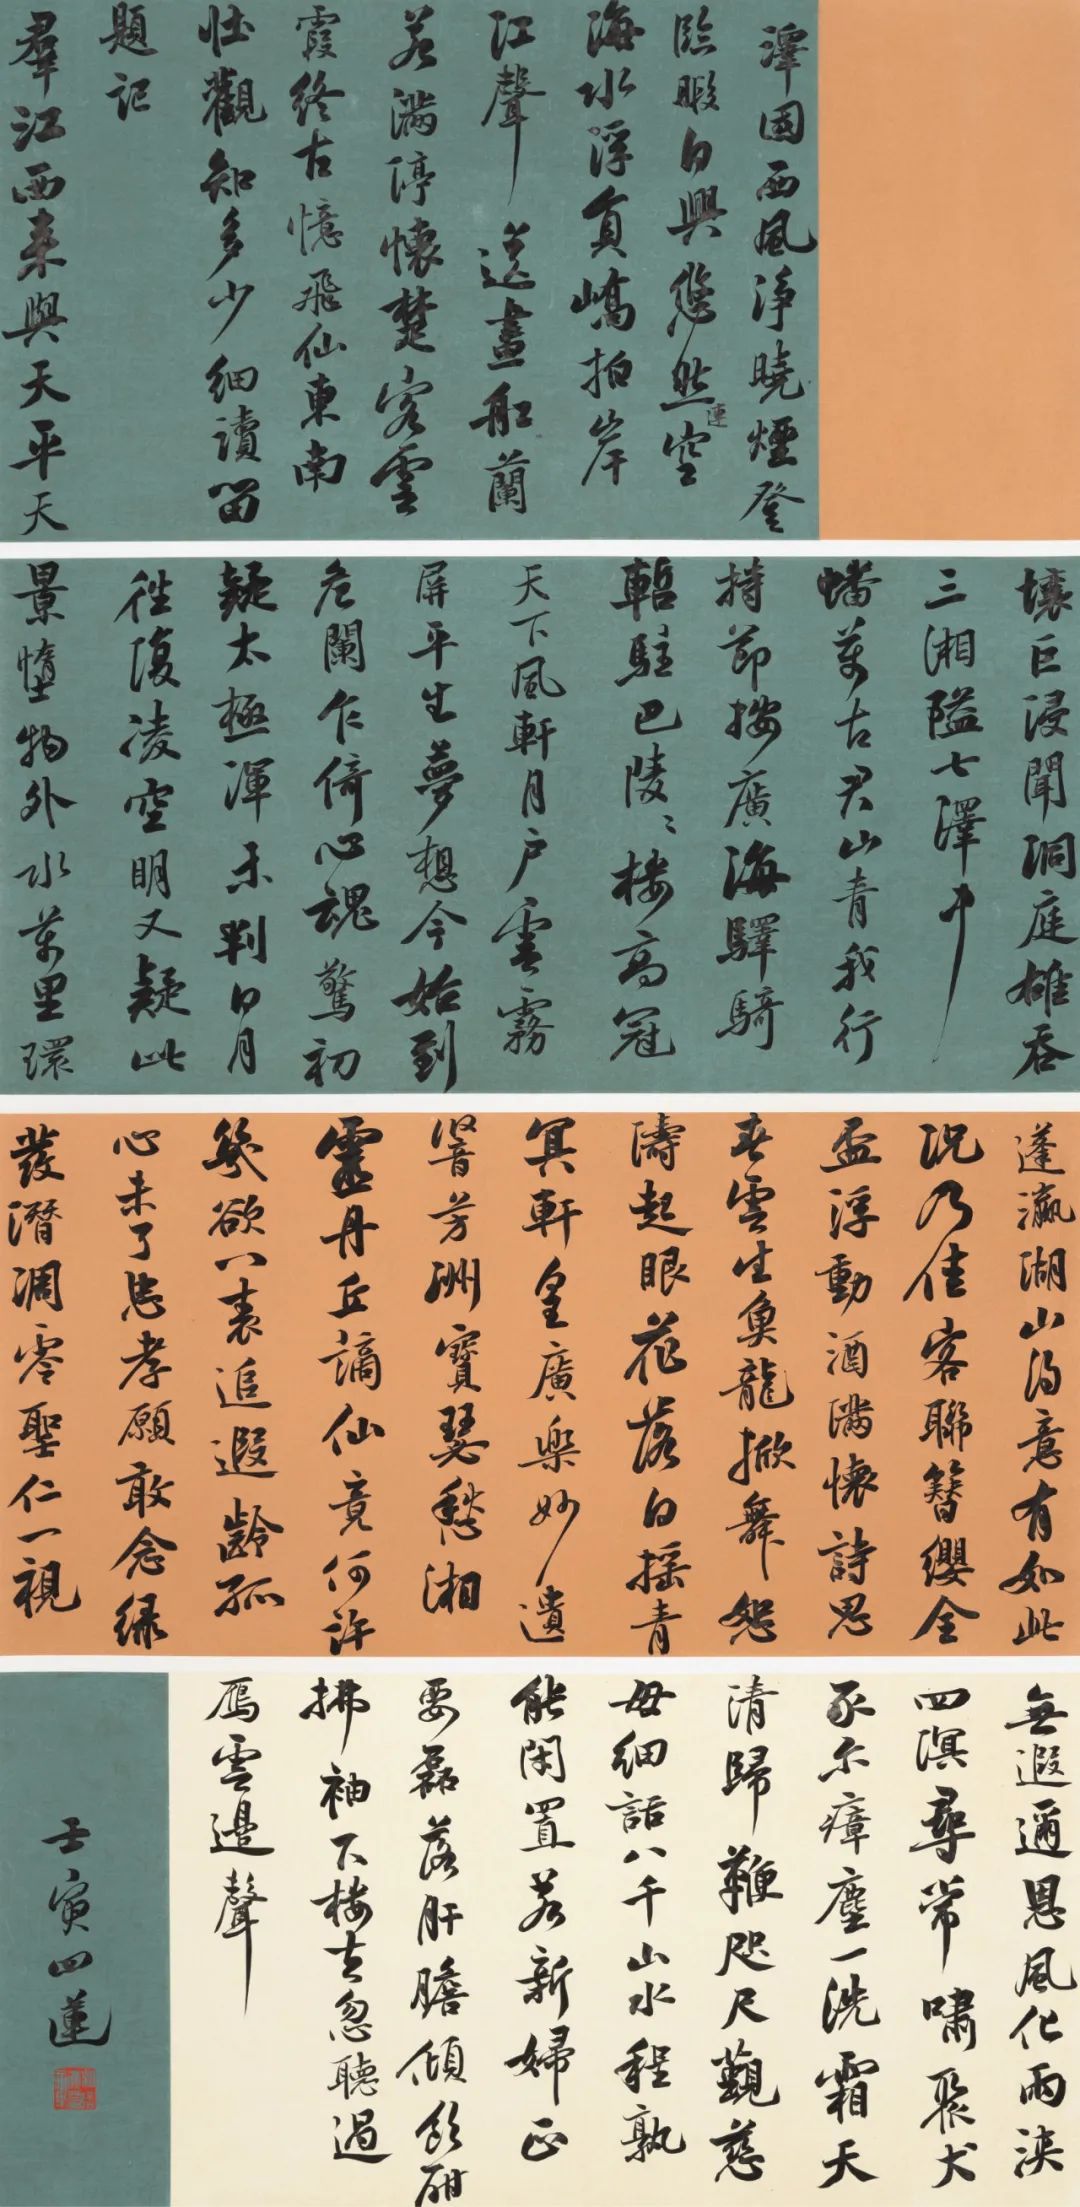 澤國西風淨曉煙登
臨暇日興悠然空
連
海水浮員嶠拍岸
江聲送畫船蘭
若滿停懷楚客雲
霞終古憶飛仙東南
壯觀知多少細讀留
題記
群江西來與天平天
壤巨浸聞洞庭雄吞
三湘隘七澤中
蟠萬古君山青我行
持節按廣海驛騎
暫駐巴陵〻樓高冠
天下風軒月戶雲霧
屏平生夢想今始到
危闌乍倚心魂驚初
疑太極渾未判日月
往復凌空明又疑此
景墮物外水萬里環
蓬瀛湖山得意有如此
況乃佳客聯簪纓金
盃浮動酒滿懷詩思
春雲生魚龍掀舞怒
濤起眼花落白搖青
冥軒皇廣樂妙遺
響芳洲寶瑟愁湘
靈丹丘謫仙竟何許
幾欲八表追遐齡孤
心未了忠孝願敢念綠
發潛凋零聖仁一視
無遐邇恩風化雨浹
四溟尋常嘯聚犬
豕尔瘴塵一洗霜天
清歸鞭咫尺覲慈
母細話八千山水程孰
能閑置若新婦正
要磊落肝膽傾飲酣
拂袖下樓去忽聽過
雁雲邊聲
壬寅四蓮